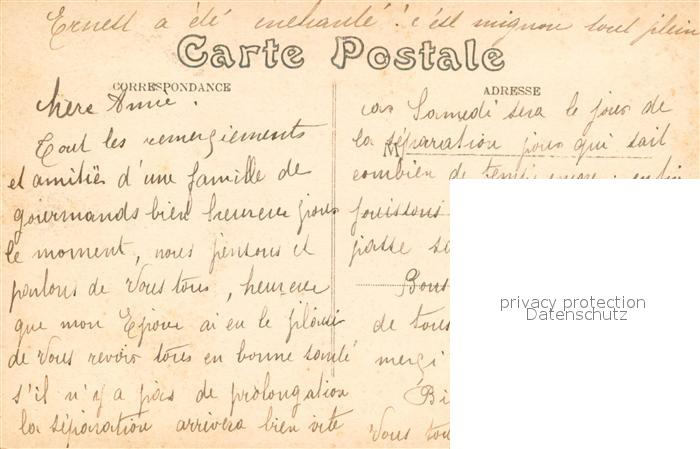 Ernest a été enchanté ! c'est mignon tout plein
Carte Postale
CORRESPONDANCE
chère Annie.
Tout les remerciements
et amitiés d'une famille de
gourmands bien heureux pour
le moment, nous pensons et
parlons de vous tous, heureuse
que mon Epoux ai eu le plaisir
de vous revoir tous en bonne santé
s'il n'y a pas de prolongation
la séparation arrivera bien vite
ADRESSE
car Samedi sera le jour de
la séparation pour qui sait
M
combien de temps encore : enfin
jouissons
passe
Bons
de tous
merci
Bi
vous tou
privacy protection
Datenschutz